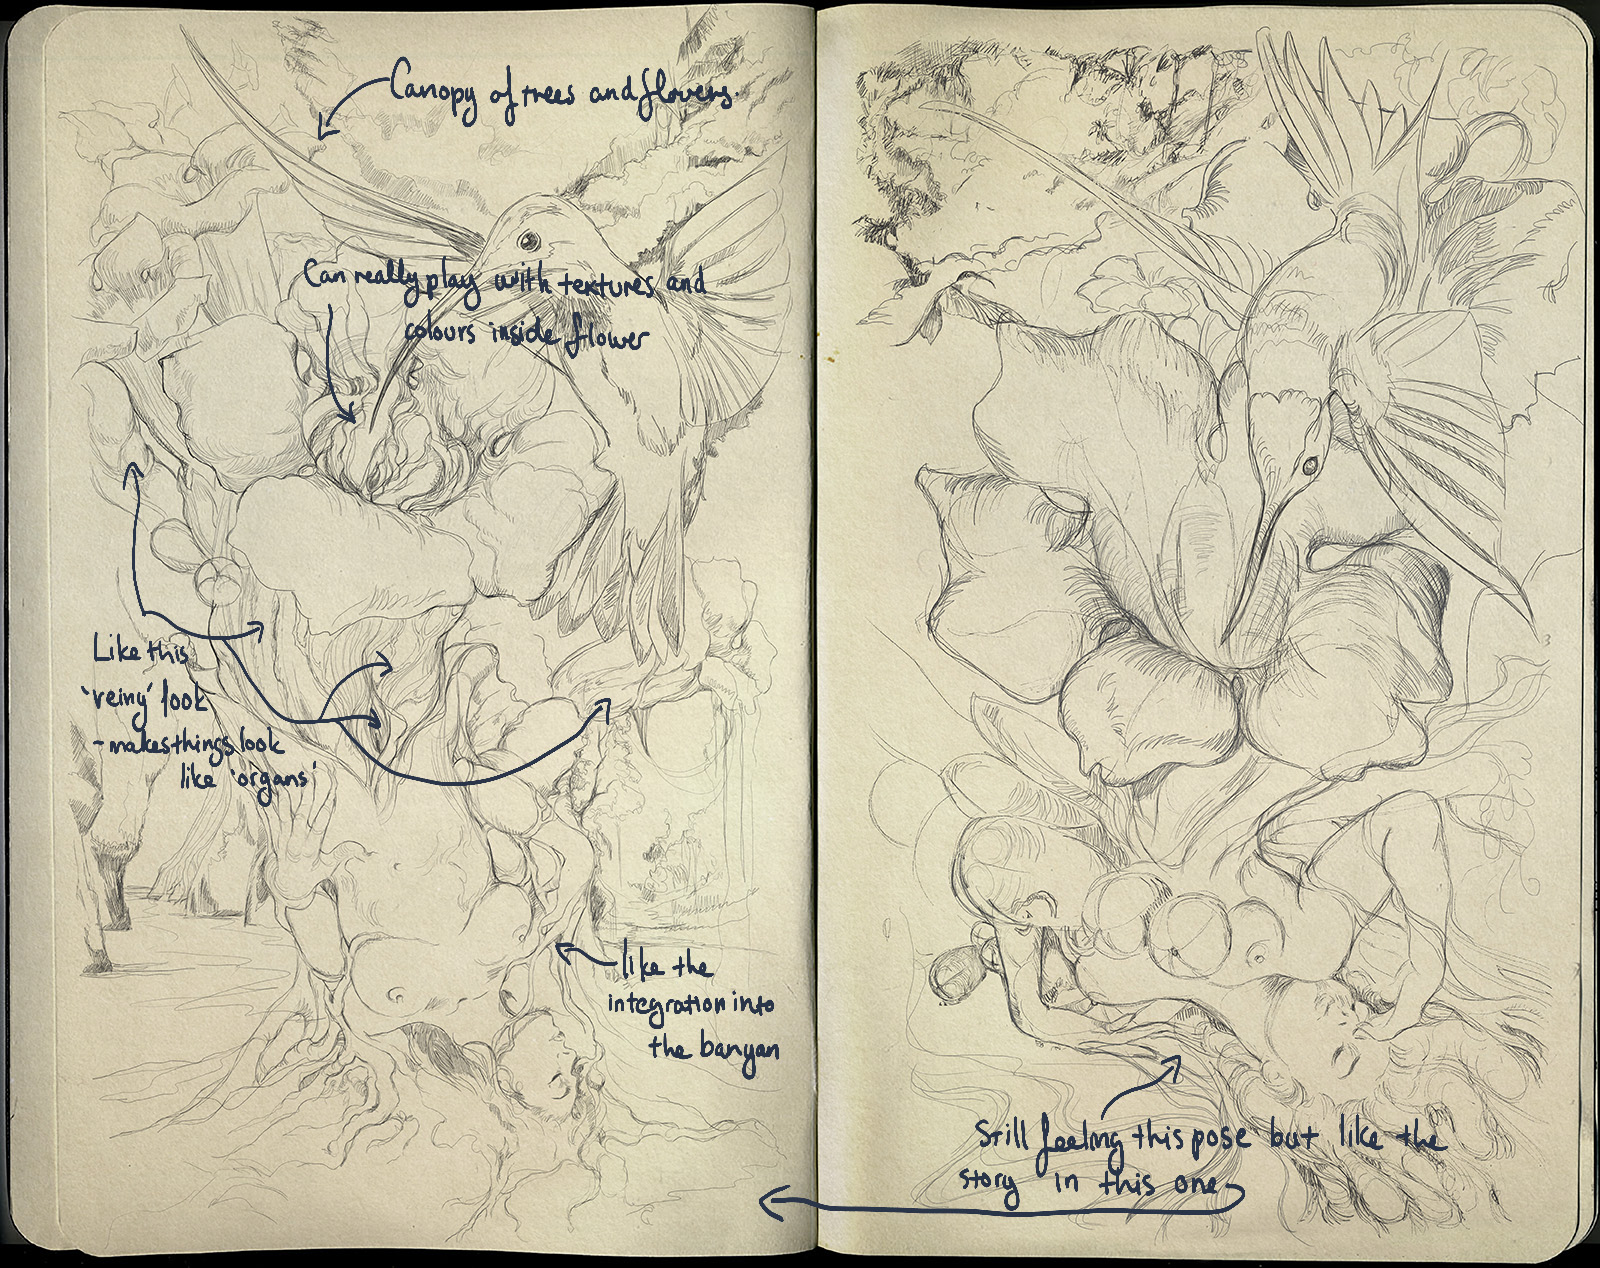 Canopy of trees and flowers.
Can really play with textures and
colours inside flower
Like this
'veiny' look
- makes things look
like 'organs'
like the
integration into
the banyan
Still feeling this pose but like the
story in this one